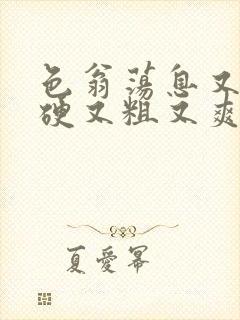 色翁荡息又
硬又粗又爽
夏爱幂